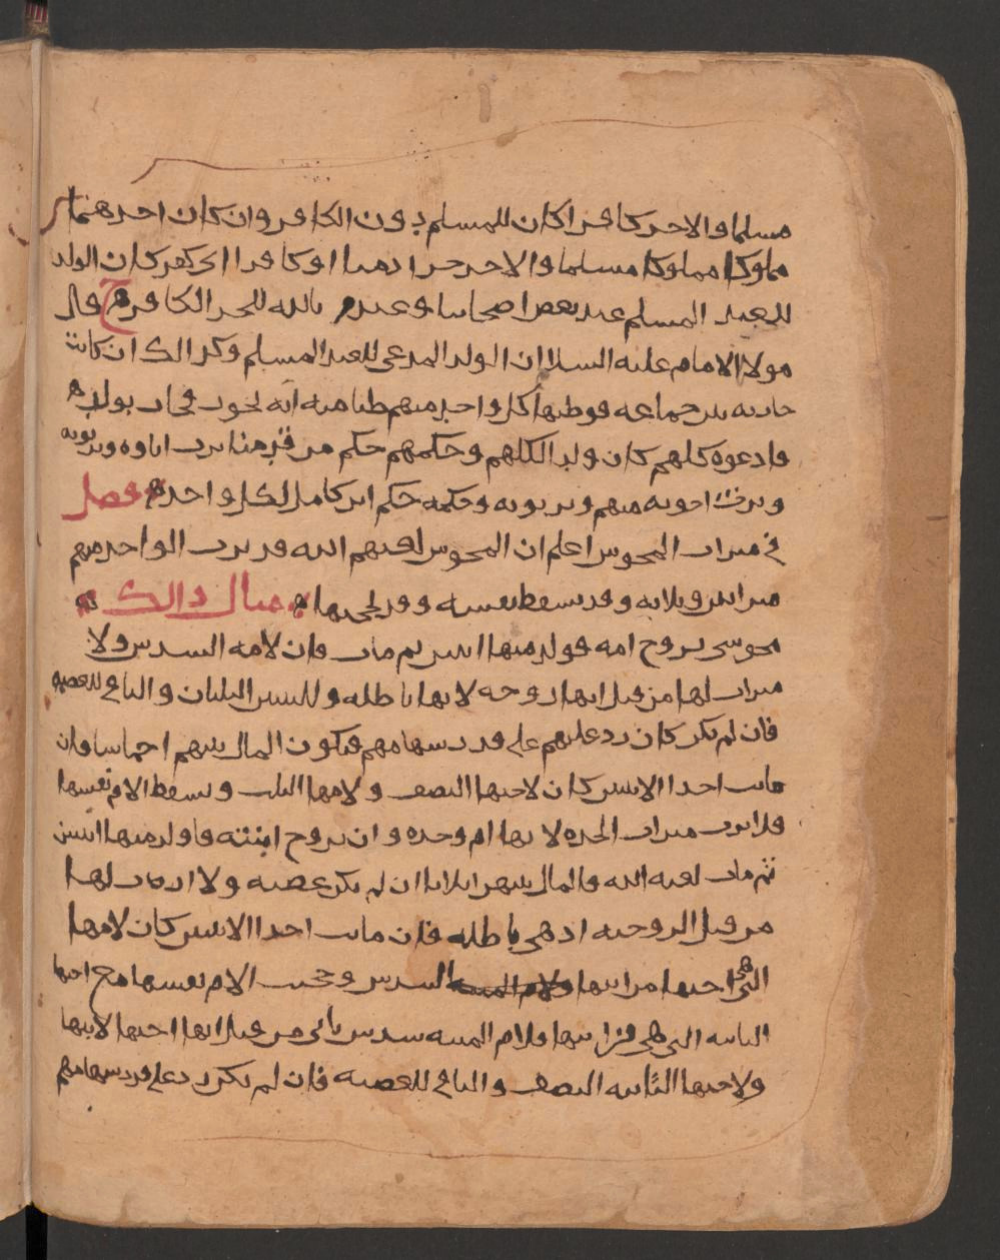 مسلما والاخر كافرا كان للمسلم دون الكافر وان كان احدهما
مملوكا مسلما والاخر حرا ذميا او كافرا اي كفر كان الولد
للعبد المسلم عند بعض اصحابنا وعند م بالله للحر الكافر ح قال
مولانا الامام عليه السلام ان الولد المدعى للعبد المسلم وكذالك ان كانت
جارية بين جماعة فوطيها كل واحد منهم ظنا منه انه يجوز فجات بولد
فادعوه كلهم كان ولدا لكلهم وحكمهم حكم من قدمنا يرث اباوه ويرثونه
ويرث اخوته منهم ويرثونه وحكمه حكم ابن كامل لكل واحد فصل
في ميراث المجوس اعلم ان المجوس لعنهم الله قد يرث الواحد منهم
ميراثين وثلاثه وقد يسقط نفسه وقد يحجبها مثال ذالك
مجوسي تزوج امه فولد منها ابنتين ثم مات فان لامه السدس ولا
ميراث لها من قبل انها زوجه لانها باطله وللبنتين الثلثان والباقي للعصبه
فان لم تكن كان رد عليهم على قدر سهامهم فيكون المال بينهم اخماسا فان
ماتت احدا الابنتين كان لاختها النصف ولامها الثلث وتسقط الام نفسها
فلا ترث ميراث الجده لانها ام وحده وان تزوج ابنته فاولد منها ابنتين
ثم مات لعنه الله فالمال بينهن اثلاثا ان لم تكن عصبه ولا ارث لها
من قبل الزوجيه اذ هي باطله فان ماتت احدا الابنتين كان لامها
التي هي اختها من ابيها السدس وتحجب الام نفسها مع اختها
الثانيه التي هي من ابيها فلام الميته سدس ثاني من قبل انها اختها لابيها
ولاختها الثانيه النصف والباقي للعصبه فان لم تكن رد على قدر سهامهم